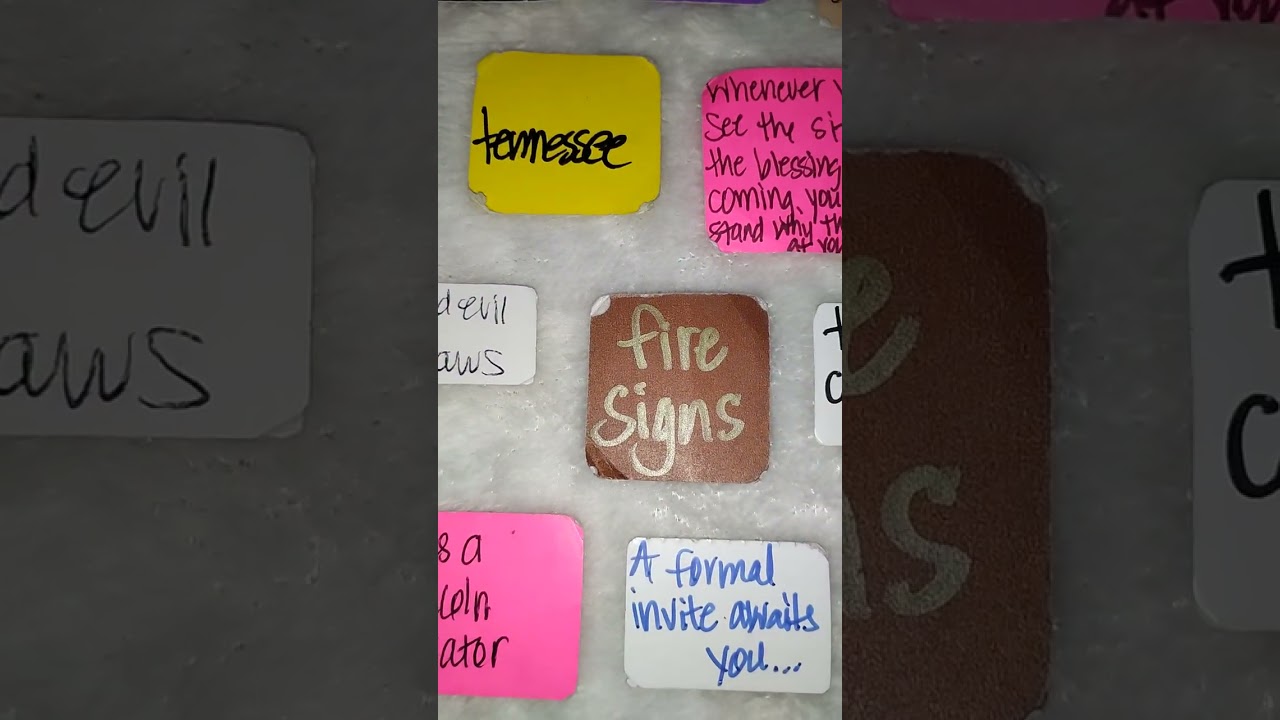 tennessee
Whenever
See the
the blessing
coming, you
stand why
at you
devil
fire
signs
a
A formal
invite awaits
you...